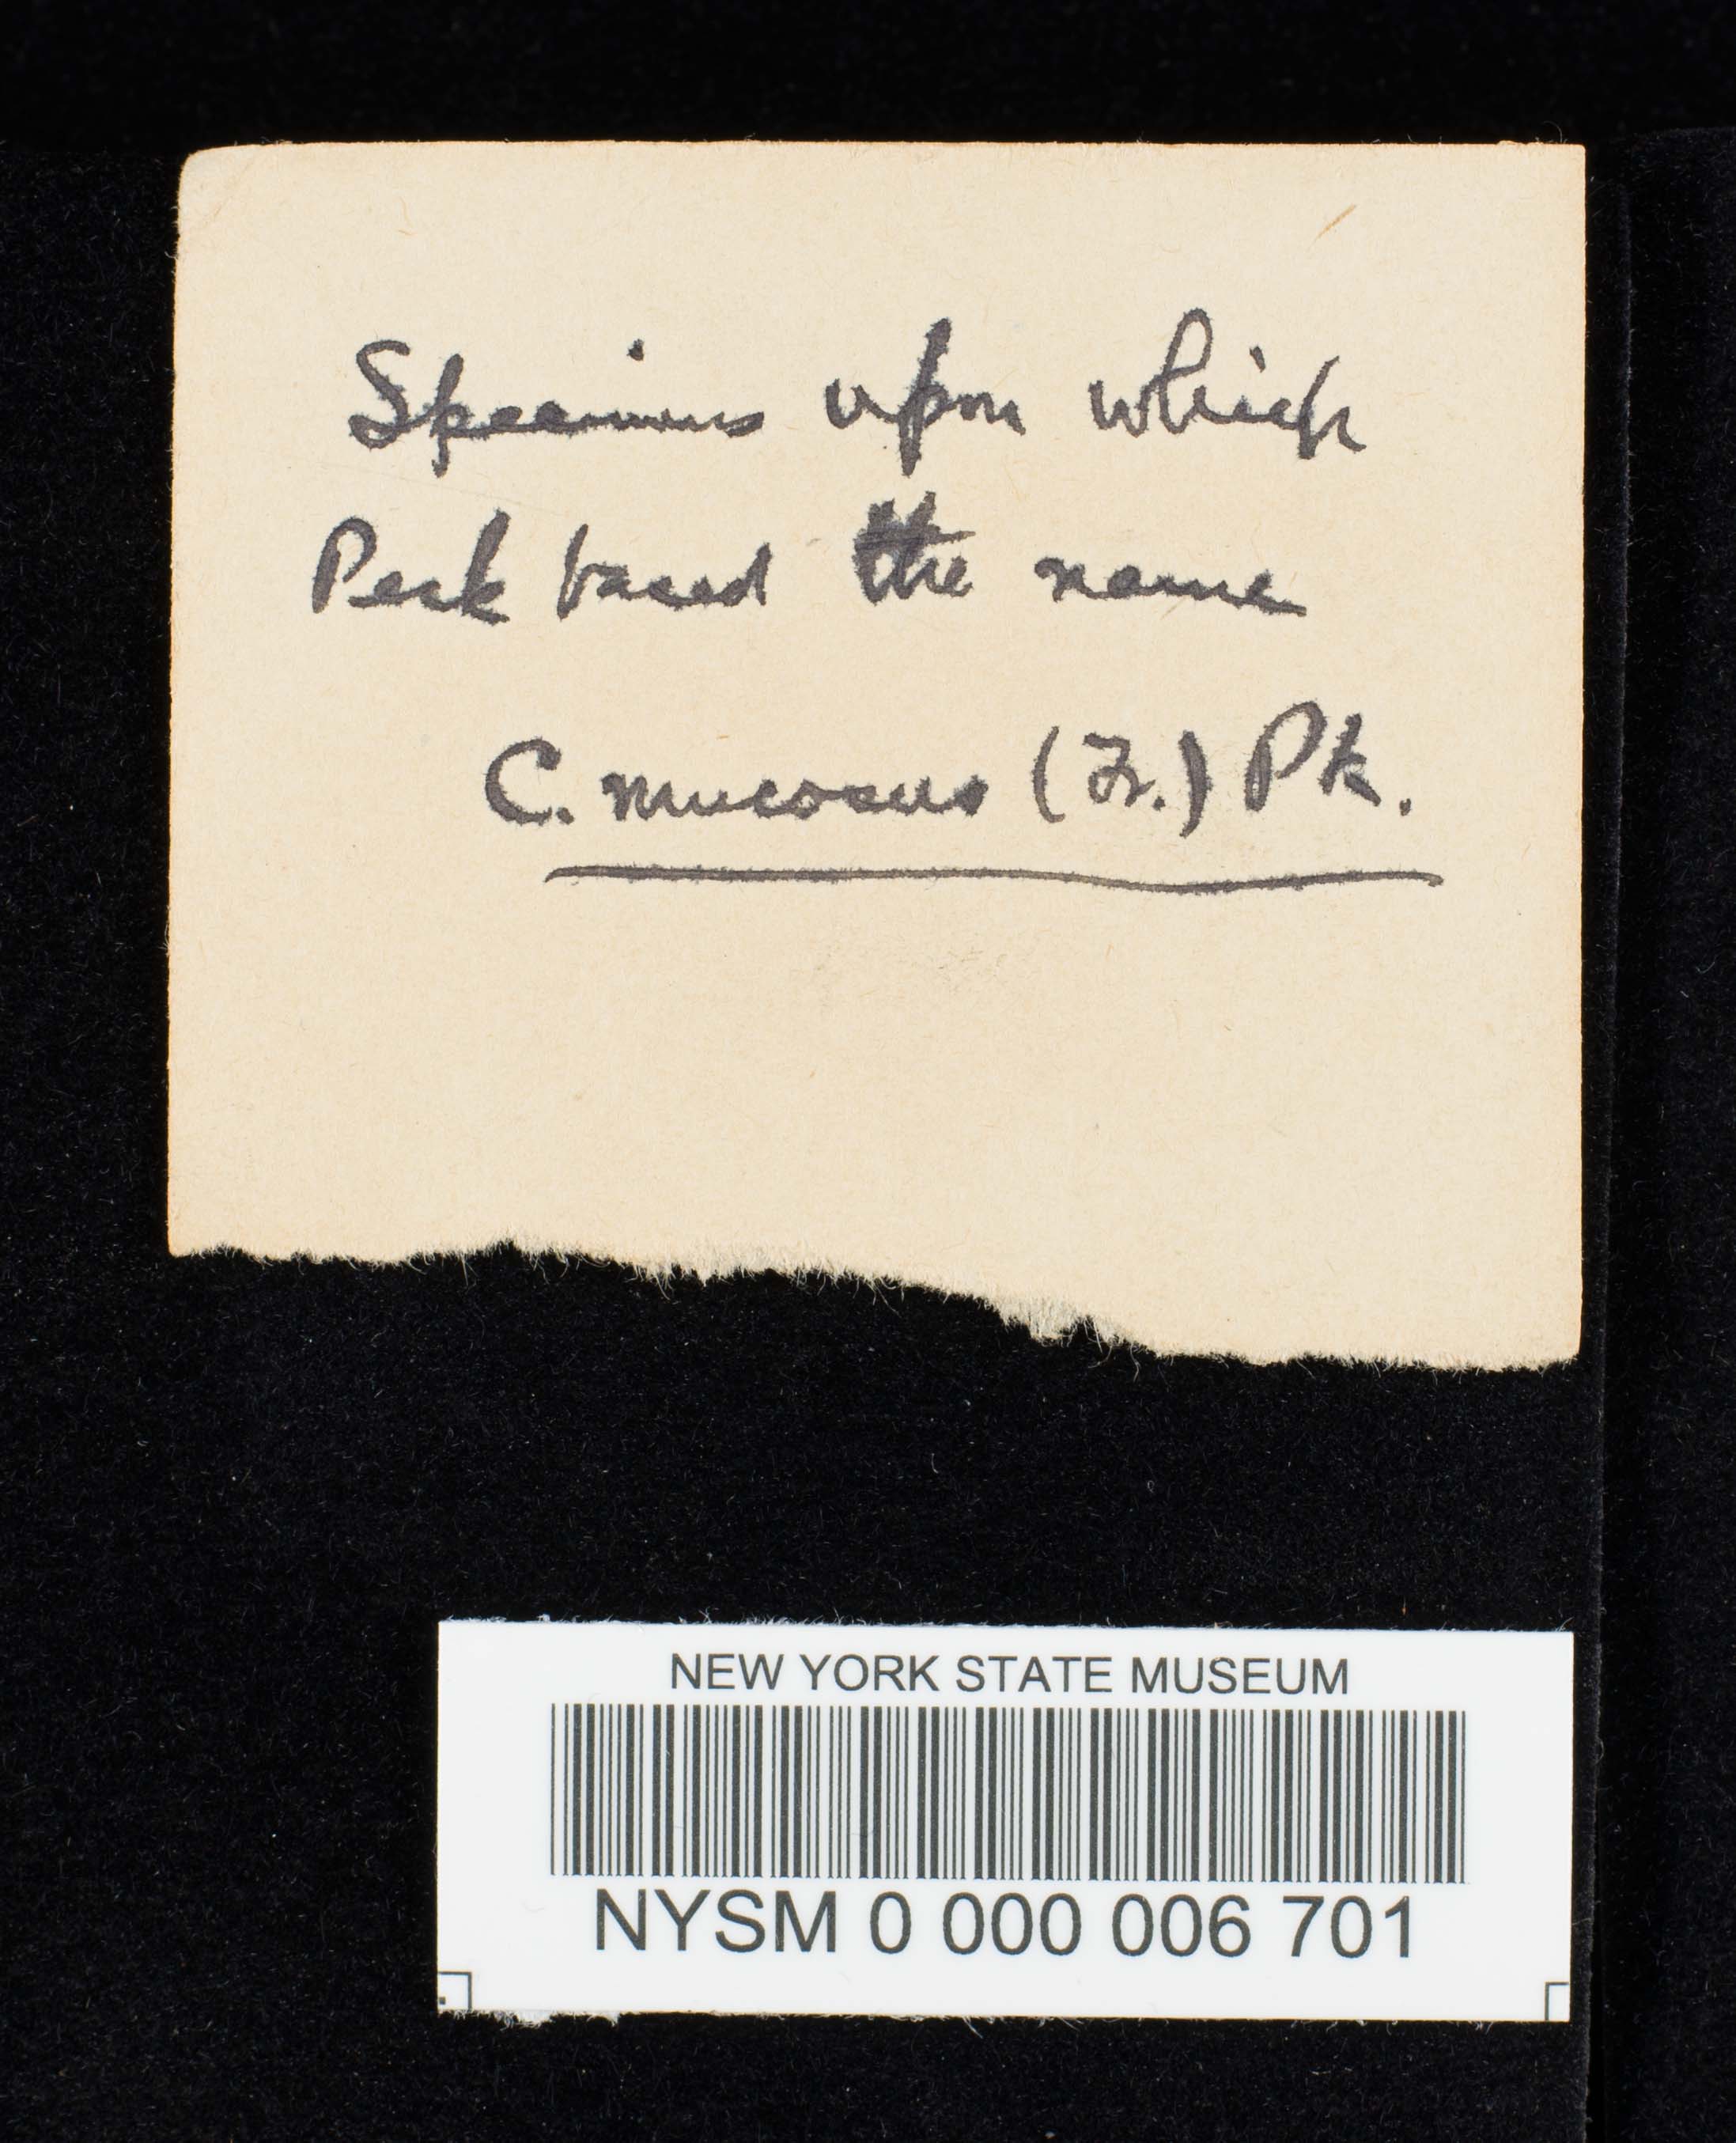 Specimens upon which
Peck based the name
C. mucosus (Fr.) Pk.
NEW YORK STATE MUSEUM
NYSM 0 000 006 701